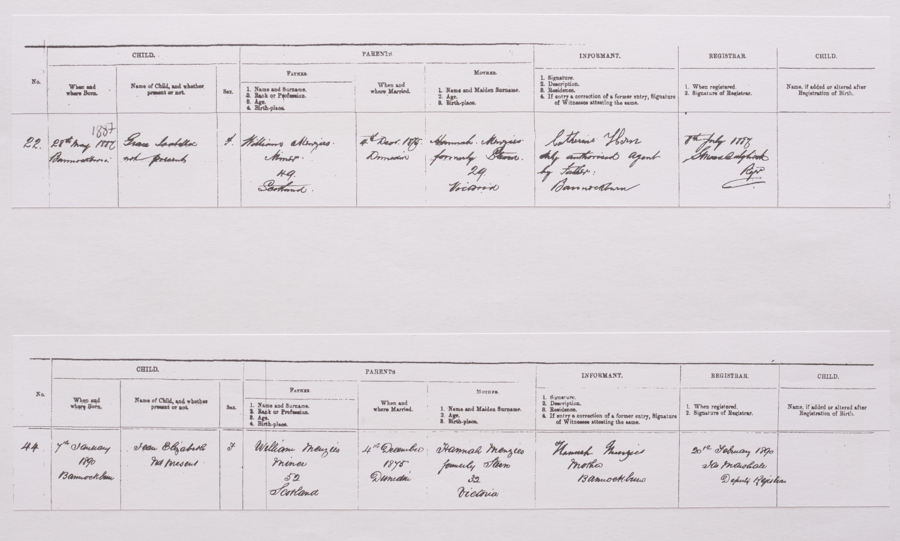 CHILD. PARENTS. INFORMANT. REGISTRAR. CHILD.
No. When and where Born. Name of Child, and whether present or not. Sex.
FATHER.
1. Name and Surname.
2. Rank or Profession.
3. Age.
4. Birth-place.
When and where Married.
MOTHER.
1. Name and Maiden Surname.
2. Age.
3. Birth-place.
1. Signature.
2. Description.
3. Residence.
4. If entry a correction of a former entry, Signature of Witnesses attesting the same.
1. When registered.
2. Signature of Registrar.
Name, if added or altered after Registration of Birth.
1887
22. 28th May 1887 Grace f William Menzies 4th Decr. 1875 Hannah Menzies Catherine Horn 8th July 1887
Bannockburn not present Miner Dunedin formerly duly authorised agent
49 29 by Father. Regr
Scotland. Victoria Bannockburn
CHILD. PARENTS INFORMANT. REGISTRAR. CHILD.
No. When and where Born. Name of Child, and whether present or not. Sex.
FATHER
1. Name and Surname.
2. Rank or Profession.
3. Age.
4. Birth-place.
When and where Married.
MOTHER.
1. Name and Maiden Surname.
2. Age.
3. Birth-place.
1. Signature.
2. Description.
3. Residence.
4. If entry a correction of a former entry, Signature of Witnesses attesting the same.
1. When registered.
2. Signature of Registrar.
Name, if added or altered after Registration of Birth.
44 7th January Jean Elizabeth F William Menzies 4th December Hannah Menzies Hannah Menzies 20th February 1890
1890 Not Present Miner 1875 formerly Mother Jas Marshall
Bannockburn 52 Dunedin 32 Bannockburn Deputy Registrar
Scotland Victoria